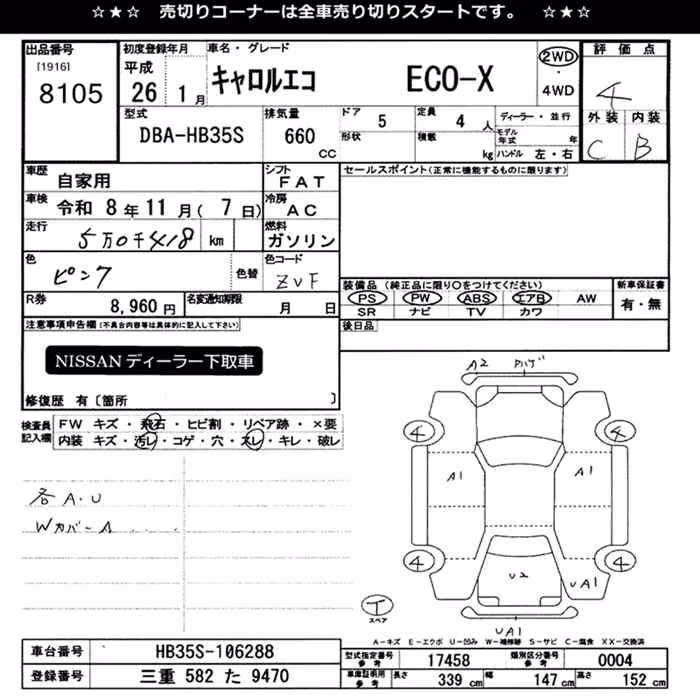 ☆★☆ 売切りコーナーは全車売り切りスタートです。 ☆★☆
出品番号
[1916]
8105
初度登録年月
平成
26 1 月
車名・グレード
キャロルエコ ECO-X
2WD
・
4WD
評価点
4
外装 内装
C B
型式
DBA-HB35S
排気量
660
CC
ドア
5
定員
4 人
ディーラー・並行
形状
積載
kg
モデル年式 年
ハンドル 左・右
車歴
自家用
シフト
FAT
車検
令和 8 年 11 月 ( 7 日)
冷房
AC
走行
5万0千418 km
燃料
ガソリン
色
ピンク
色替
色コード
ZVF
R券
8,960 円
名変通知期限
月 日
セールスポイント(正常に機能するものに限ります)
装備品 (純正品に限り〇をつけてください)
PS PW ABS エアB AW
SR ナビ TV カワ
新車保証書
有・無
後日品
注意事項申告欄(不具合内容等は具体的に記入して下さい)
NISSAN ディーラー下取車
修復歴 有〔箇所 〕
検査員
記入欄
FW キズ・飛石・ヒビ割・リペア跡・×要
内装 キズ・汚レ・コゲ・穴・スレ・キレ・破レ
各 A・U
Wカバー A
A2 ハゲ
4 4
A1 A1
4 4
U2
UA1
T
スペア
UA1
A－キズ E－エクボ U－凹み W－補修跡 S－サビ C－腐食 XX－交換済
車台番号
HB35S-106288
登録番号
三重 582 た 9470
型式指定番号
参考
17458
類別区分番号
参考
0004
車庫証明用
参考
長さ
339 cm
幅
147 cm
高さ
152 cm